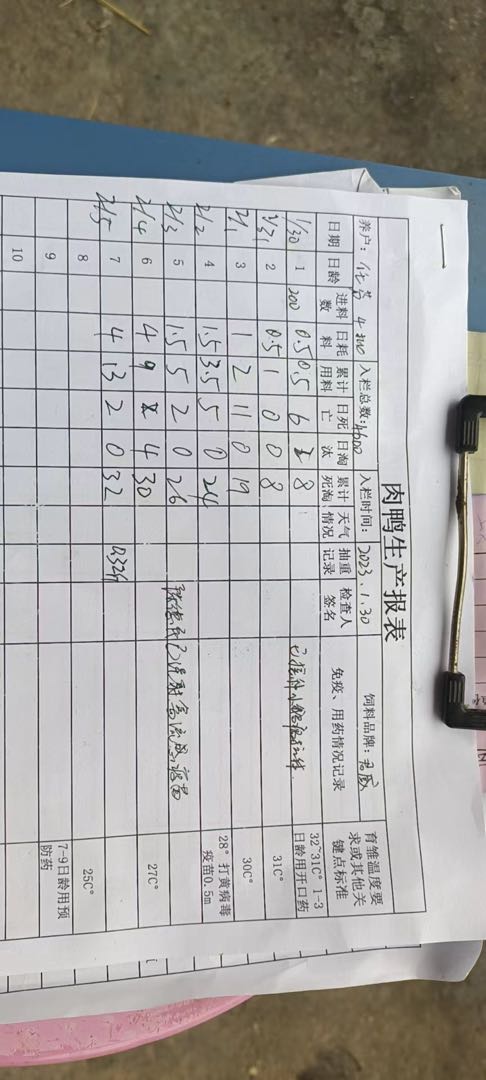 肉鸭生产报表
养户: 4200 入栏总数: 4600 入栏时间: 2023.1.30 饲料品牌:
日期 日龄 进料数 日耗料 累计用料 日死亡 日淘汰 累计死淘 天气情况 抽重记录 检查人签名 免疫、用药情况记录 育雏温度要求或其他关键点标准
1/30 1 200 0.5 0.5 6 2 8 32~31C° 1-3日龄用开口药
1/31 2 0.5 1 0 0 8 31C°
2/1 3 1 2 11 0 19 30C°
2/2 4 1.5 3.5 5 0 24 28° 打黄病毒疫苗0.5m
2/3 5 1.5 5 2 0 26 已注射禽流感疫苗
2/4 6 4 9 4 30 27C°
2/5 7 4 13 2 0 32
8 25C°
9 7-9日龄用预防药
10